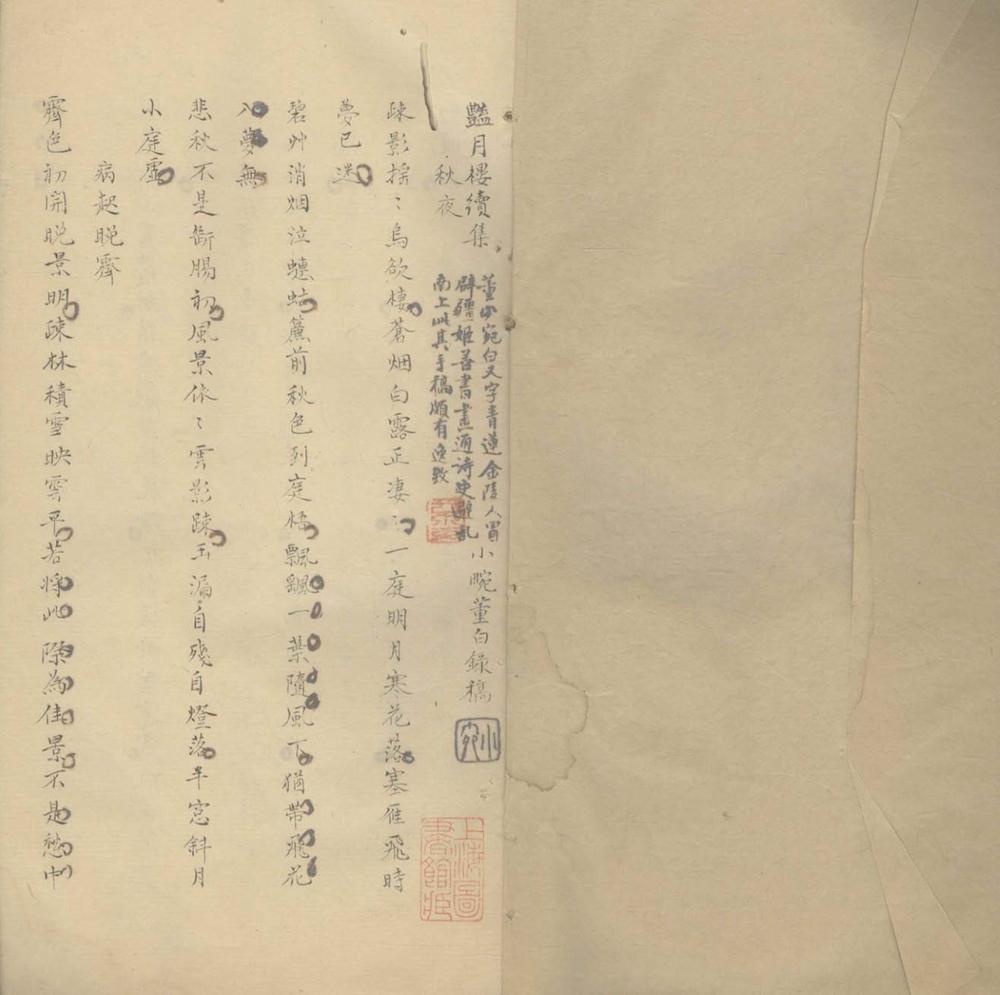 豔月樓續集
董小宛白又字青蓮金陵人冒
辟疆姬善書畫通詩史避亂
南上此其手稿頗有逸致
小畹董白錄稿
小宛
上海圖
書館藏
秋夜
疎影搖〻烏欲棲蒼烟白露正凄〻一庭明月寒花落塞雁飛時
夢已迷
碧艸消烟泣蟪蛄簾前秋色到庭梧飄飄一葉隨風下猶帶飛花
入夢無
悲秋不是斷腸初風景依〻雲影疎玉漏自殘自燈落半窓斜月
小庭虛
病起晚霽
霽色初開晚景明疎林積雪映雲平若將此際為佳景不是愁中